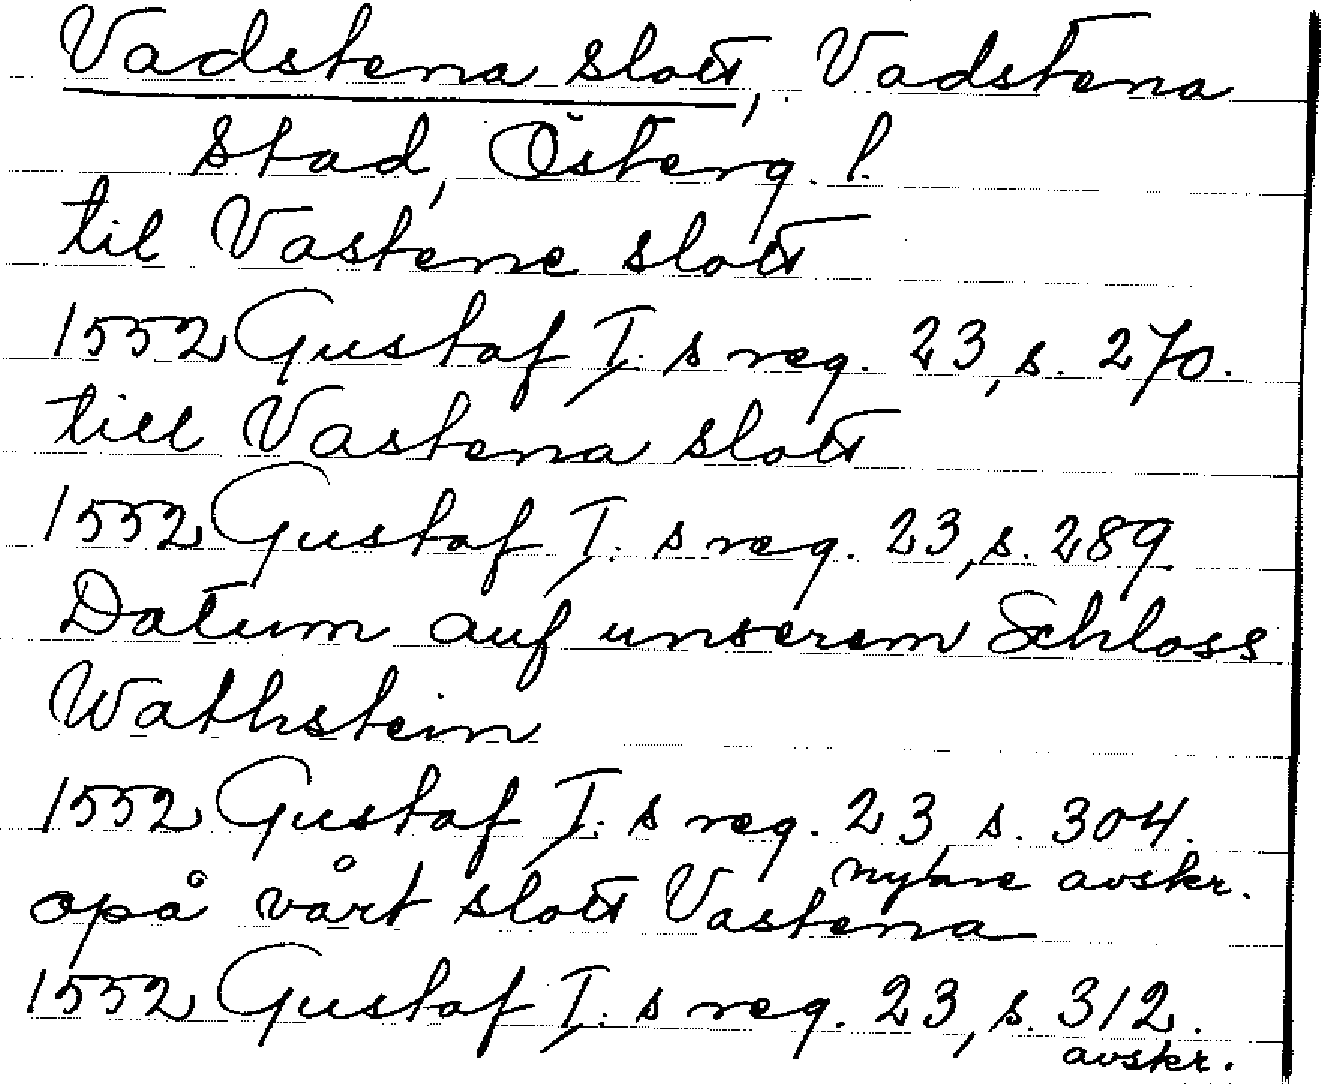 Vadstena slott, Vadstena
stad, Österg. l.
til Vastene slott
1552 Gustaf I. s reg. 23, s. 270.
till Vastena slott
1552 Gustaf I. s reg. 23, s. 289
Datum auf unserem Schloss
Wathstein
1552 Gustaf I. s reg. 23, s. 304.
nyare avskr.
opå vårt slott Vastena
1552 Gustaf I. s reg. 23, s. 312.
avskr.